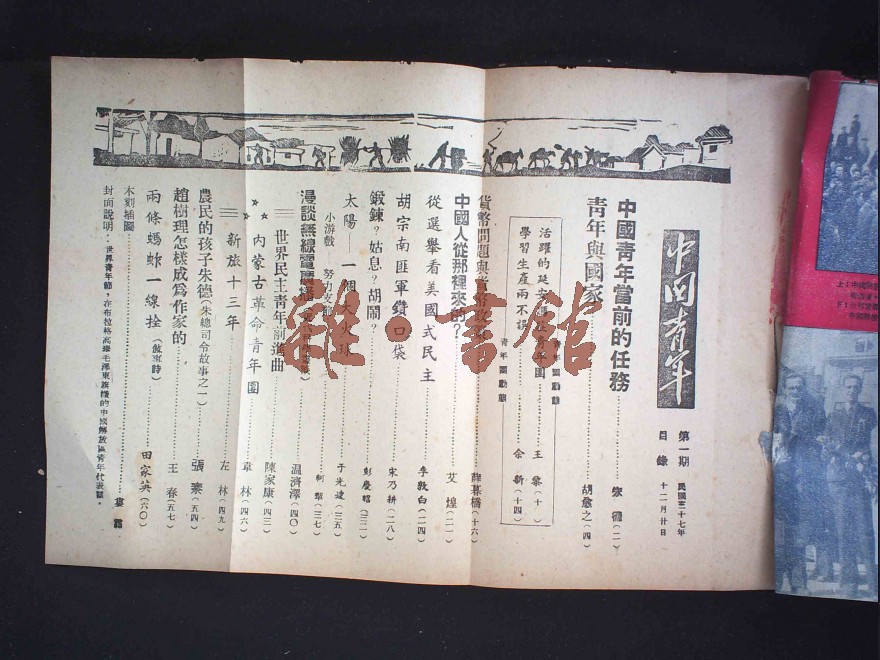 中国青年
第一期 民國三十七年
目錄 十二月廿日
中國靑年當前的任務
靑年與國家 胡愈之(四)
靑年團動態
活躍的延安 靑年團 王 (十)
學習生產兩不誤 余新(十四)
靑年團動態
貨幣問題與 薛暮橋(十六)
中國人從那裡來的? 艾煌(二一)
從選舉看美國式民主 李敦白(二四)
胡宗南匪軍鑽口袋 宋乃耕(二八)
鍛鍊?姑息?胡鬧? 彭慶昭(三二)
太陽——一個大火球 于光遠(三五)
小游戲——努力支前 柯 (三七)
漫談無線電廣播 溫濟澤(四〇)
世界民主靑年前進曲 陳家康(四三)
內蒙古革命靑年團 韋林(四六)
新旅十三年 左林(四九)
農民的孩子朱德(朱總司令故事之一) 張 (五四)
趙樹理怎樣成爲作家的 王春(五七)
兩條螞蚱一線拴(敘事詩) 田家英(六〇)
木刻插圖
封面說明:世界靑年節,在布拉格高舉毛澤東旗幟的中國解放區靑年代表團。
雜·書館